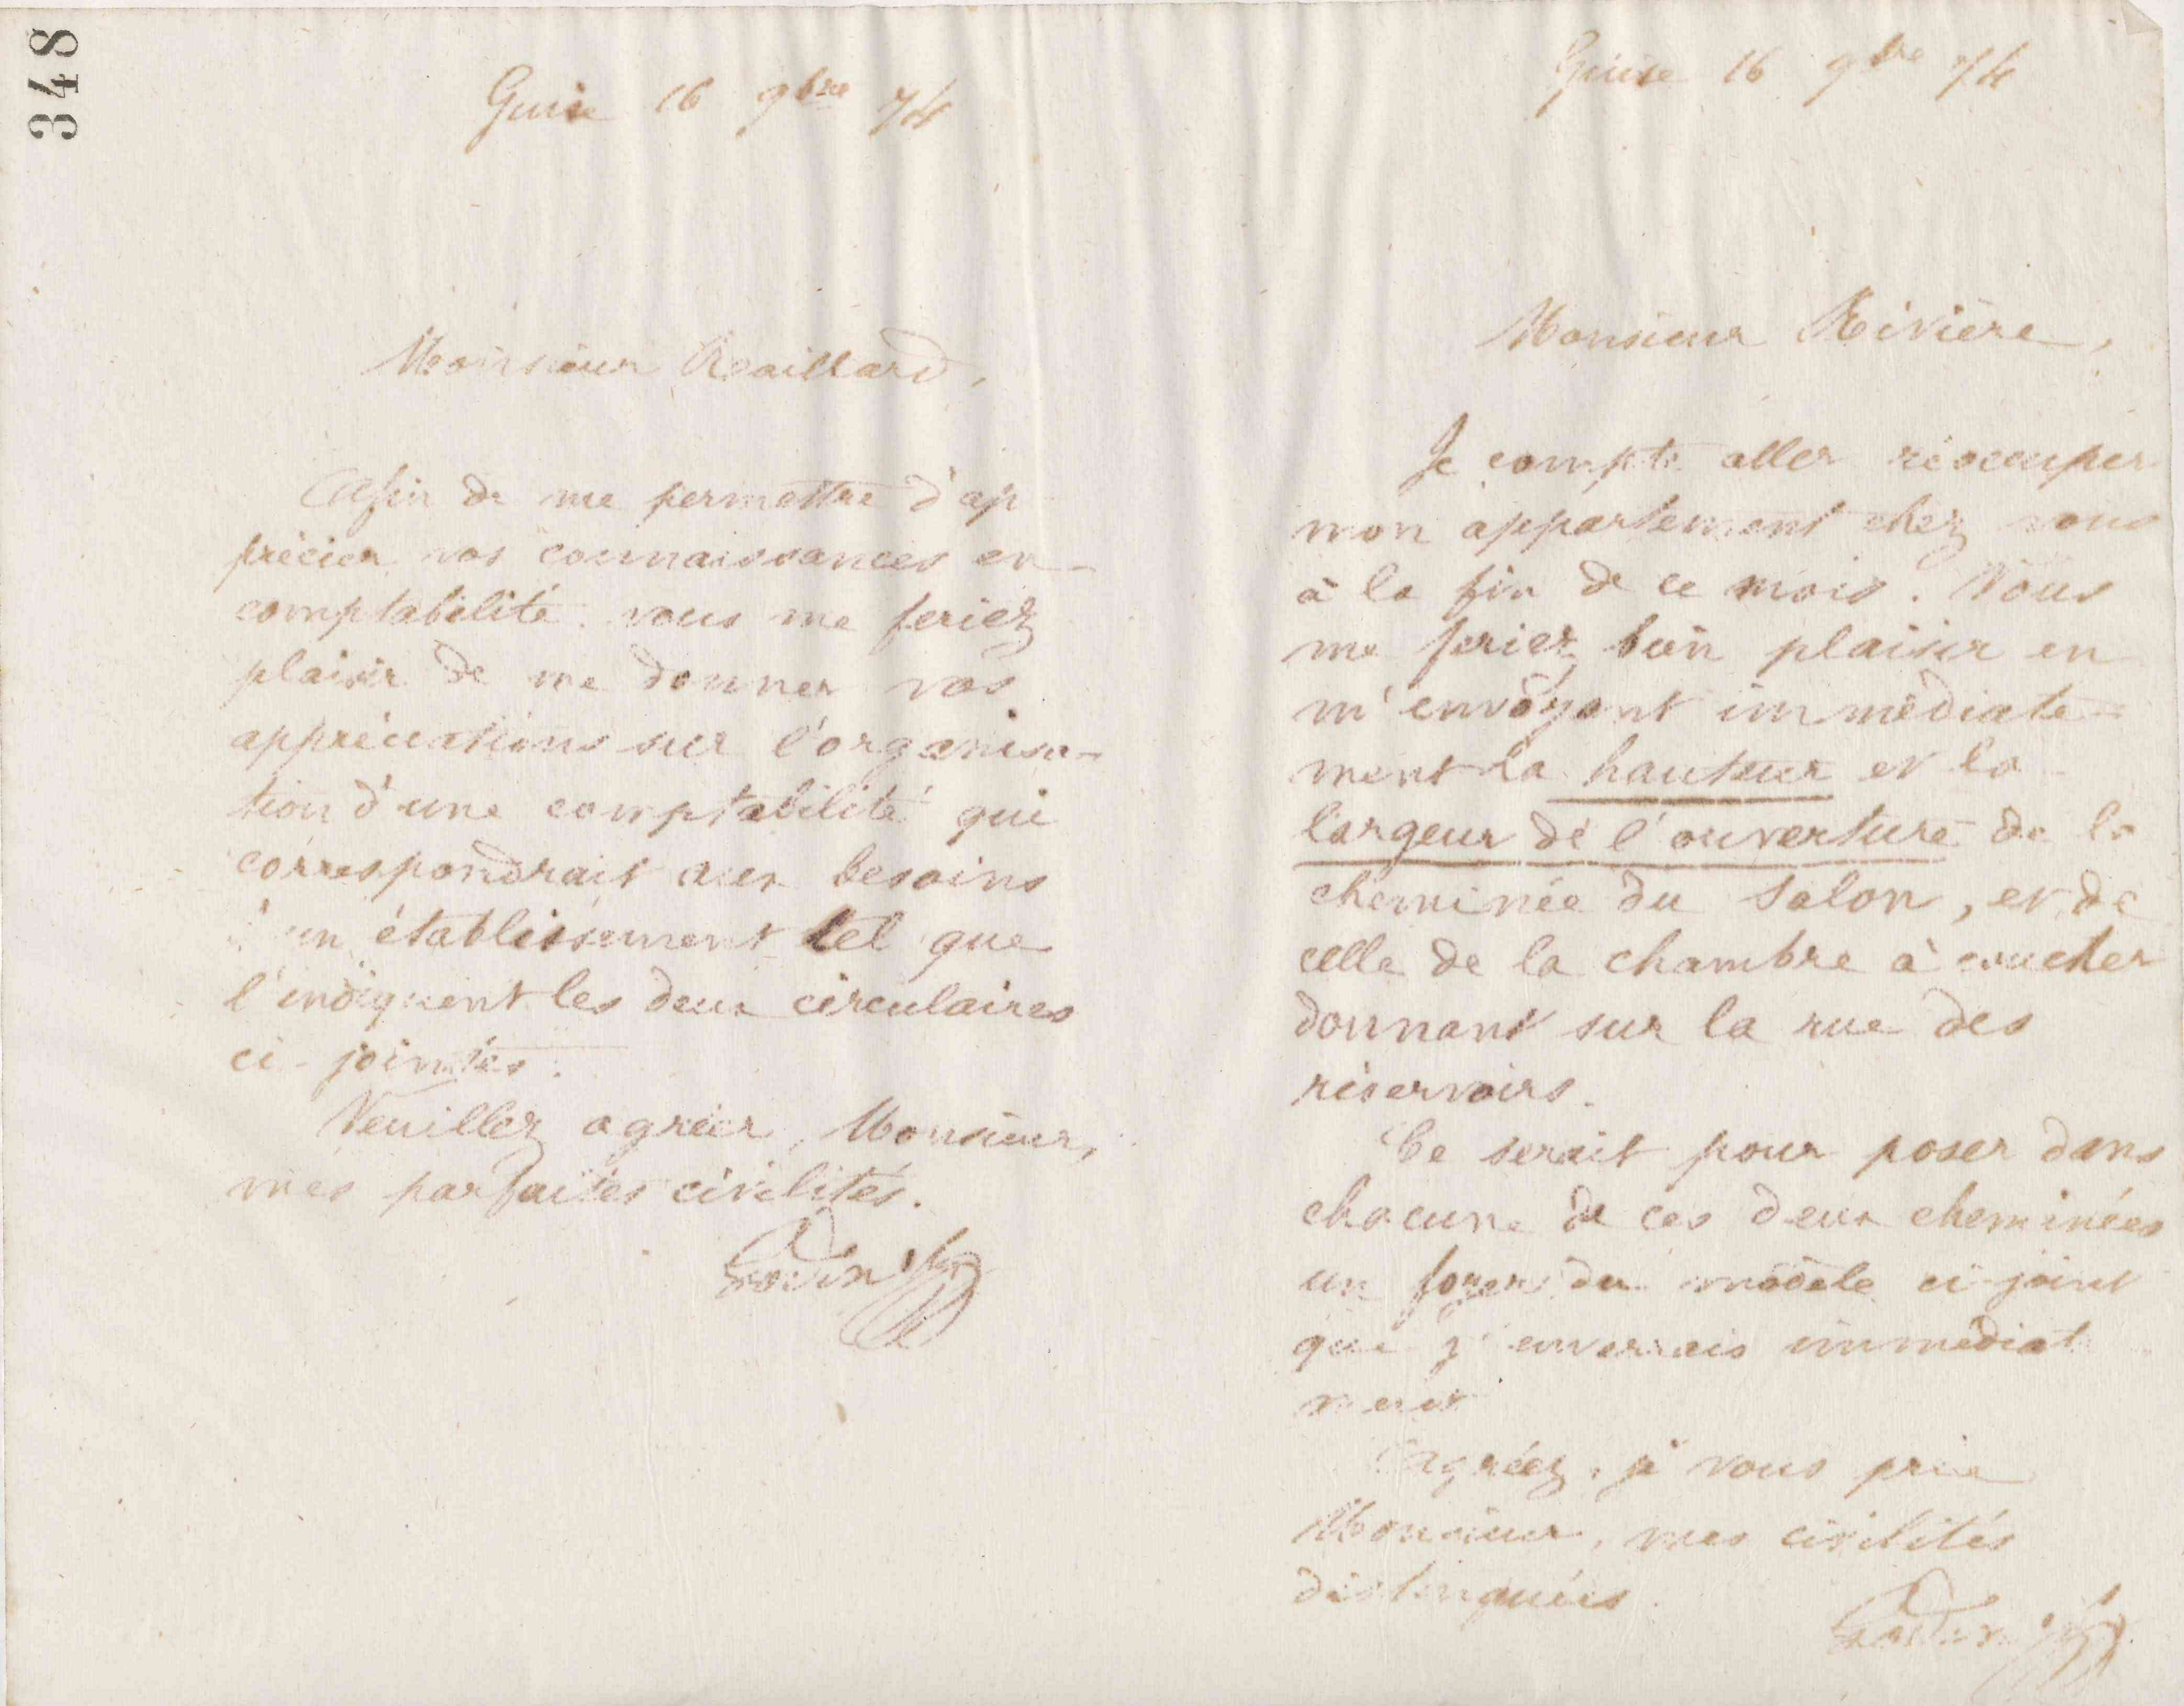 348
Guise 16 9bre 74
Monsieur
Afin de me permettre d'ap
précier vos connaissances en
comptabilité vous me feriez
plaisir de me donner vos
appréciations sur l'organisa-
tion d'une comptabilité qui
correspondrait aux besoins
d'un établissement tel que
l'indiquent les deux circulaires
ci-jointes.
Veuillez agréer, Monsieur,
mes parfaites civilités.
Godin
Guise 16 9bre 74
Monsieur Rivière,
Je compte aller réoccuper
mon appartement chez vous
à la fin de ce mois. Vous
me feriez bien plaisir en
m'envoyant immédiate-
ment la hauteur et la
largeur de l'ouverture de la
cheminée du salon, et de
celle de la chambre à coucher
donnant sur la rue des
réservoirs.
Ce serait pour poser dans
chacune de ces deux cheminées
un foyer du modèle ci-joint
que j'enverrais immédiat
ment
Agréez, je vous prie
Monsieur, mes civilités
distinguées.
Godin